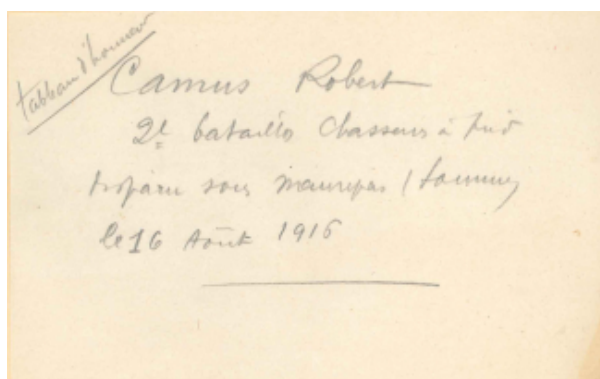 tableau d'honneur
Camus Robert
2e bataillon Chasseurs à pied
disparu sous Maurepas (Somme)
le 16 Août 1916